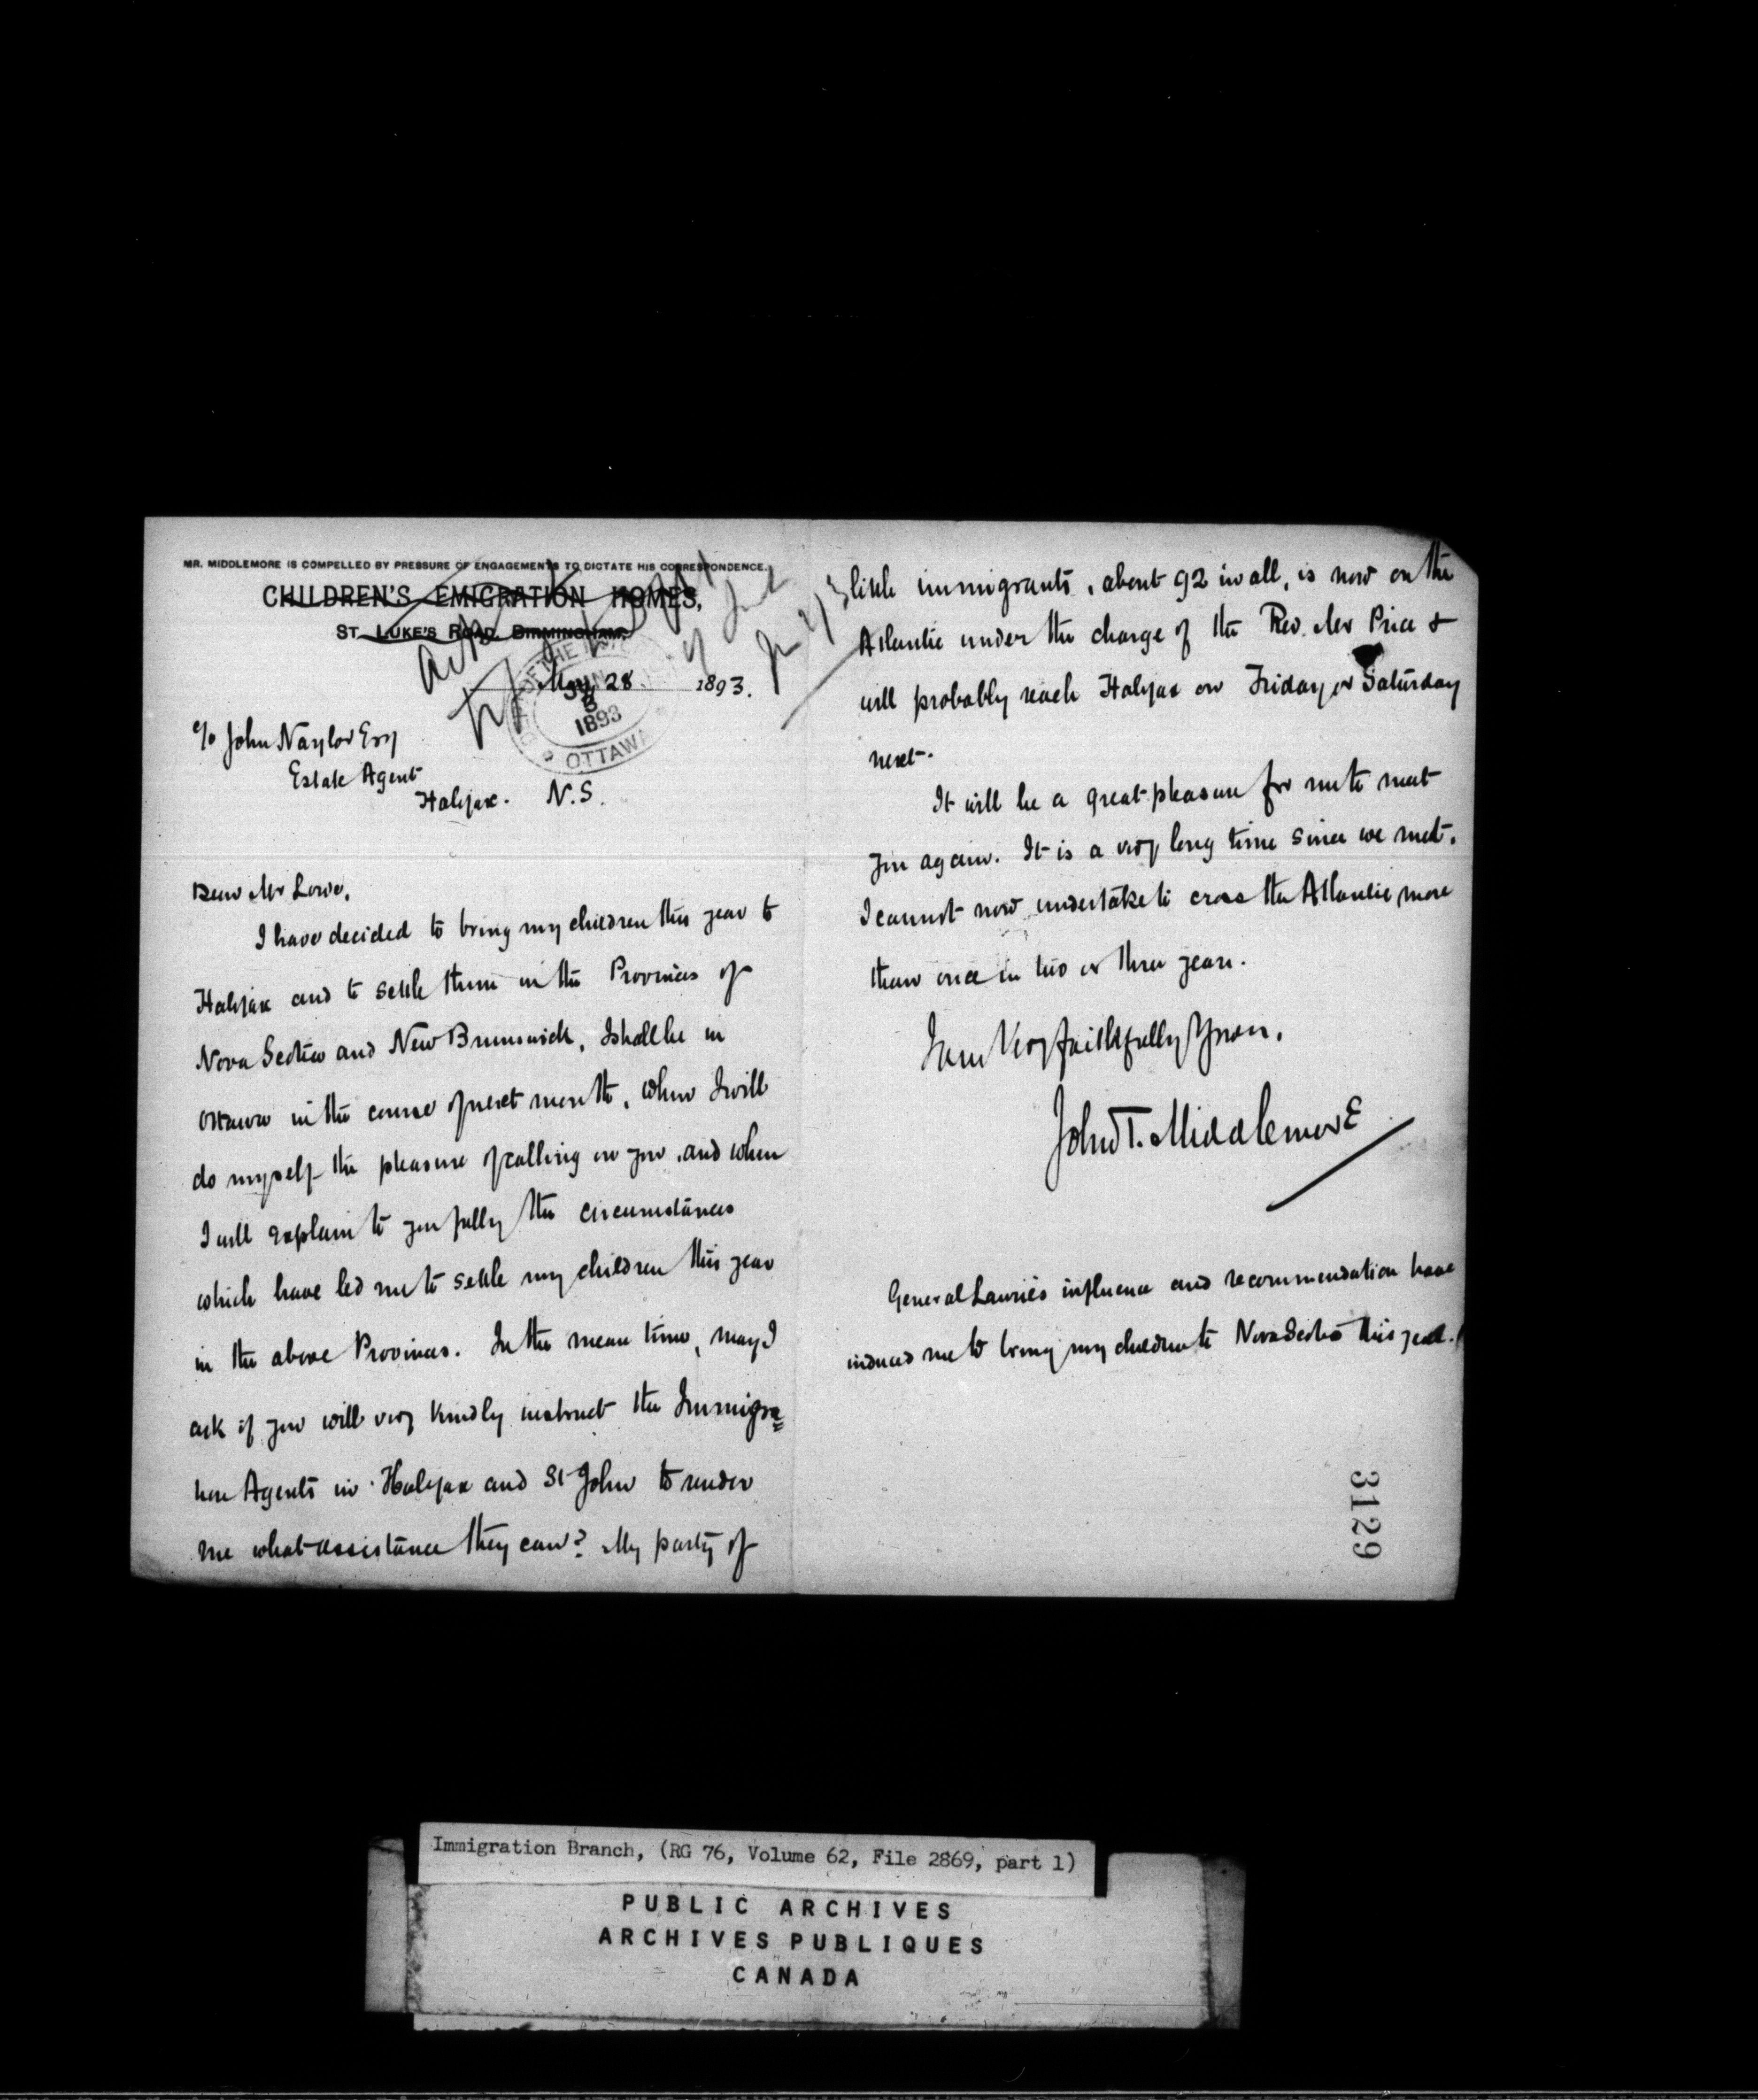 MR. MIDDLEMORE IS COMPELLED BY PRESSURE OF ENGAGEMENTS TO DICTATE HIS CORRESPONDENCE.
CHILDREN'S EMIGRATION HOMES,
ST. LUKE'S ROAD, BIRMINGHAM.
May 28 1893.
JUN
3
1893
OTTAWA
c/o John Naylor Esq
Estate Agent
Halifax. N.S.
Dear Mr Lowe,
I have decided to bring my children this year to
Halifax and to settle them in the Provinces of
Nova Scotia and New Brunswick, I shall be in
Ottawa in the course of next month, when I will
do myself the pleasure of calling on you, and when
I will explain to you fully the circumstances
which have led me to settle my children this year
in the above Provinces. In the mean time, may I
ask if you will very kindly instruct the Immigra=
tion Agents in Halifax and St John to render
me what assistance they can? My party of
little immigrants, about 92 in all, is now on the
Atlantic under the charge of the Rev. Mr Price &
will probably reach Halifax on Friday or Saturday
next.
It will be a great pleasure for me to meet
you again. It is a very long time since we met.
I cannot now undertake to cross the Atlantic more
than once in two or three years.
I am Very faithfully Yours,
John T. Middlemore
General Laurie's influence and recommendation have
induced me to bring my children to Nova Scotia this year.
3129
Immigration Branch, (RG 76, Volume 62, File 2869, part 1)
PUBLIC ARCHIVES
ARCHIVES PUBLIQUES
CANADA